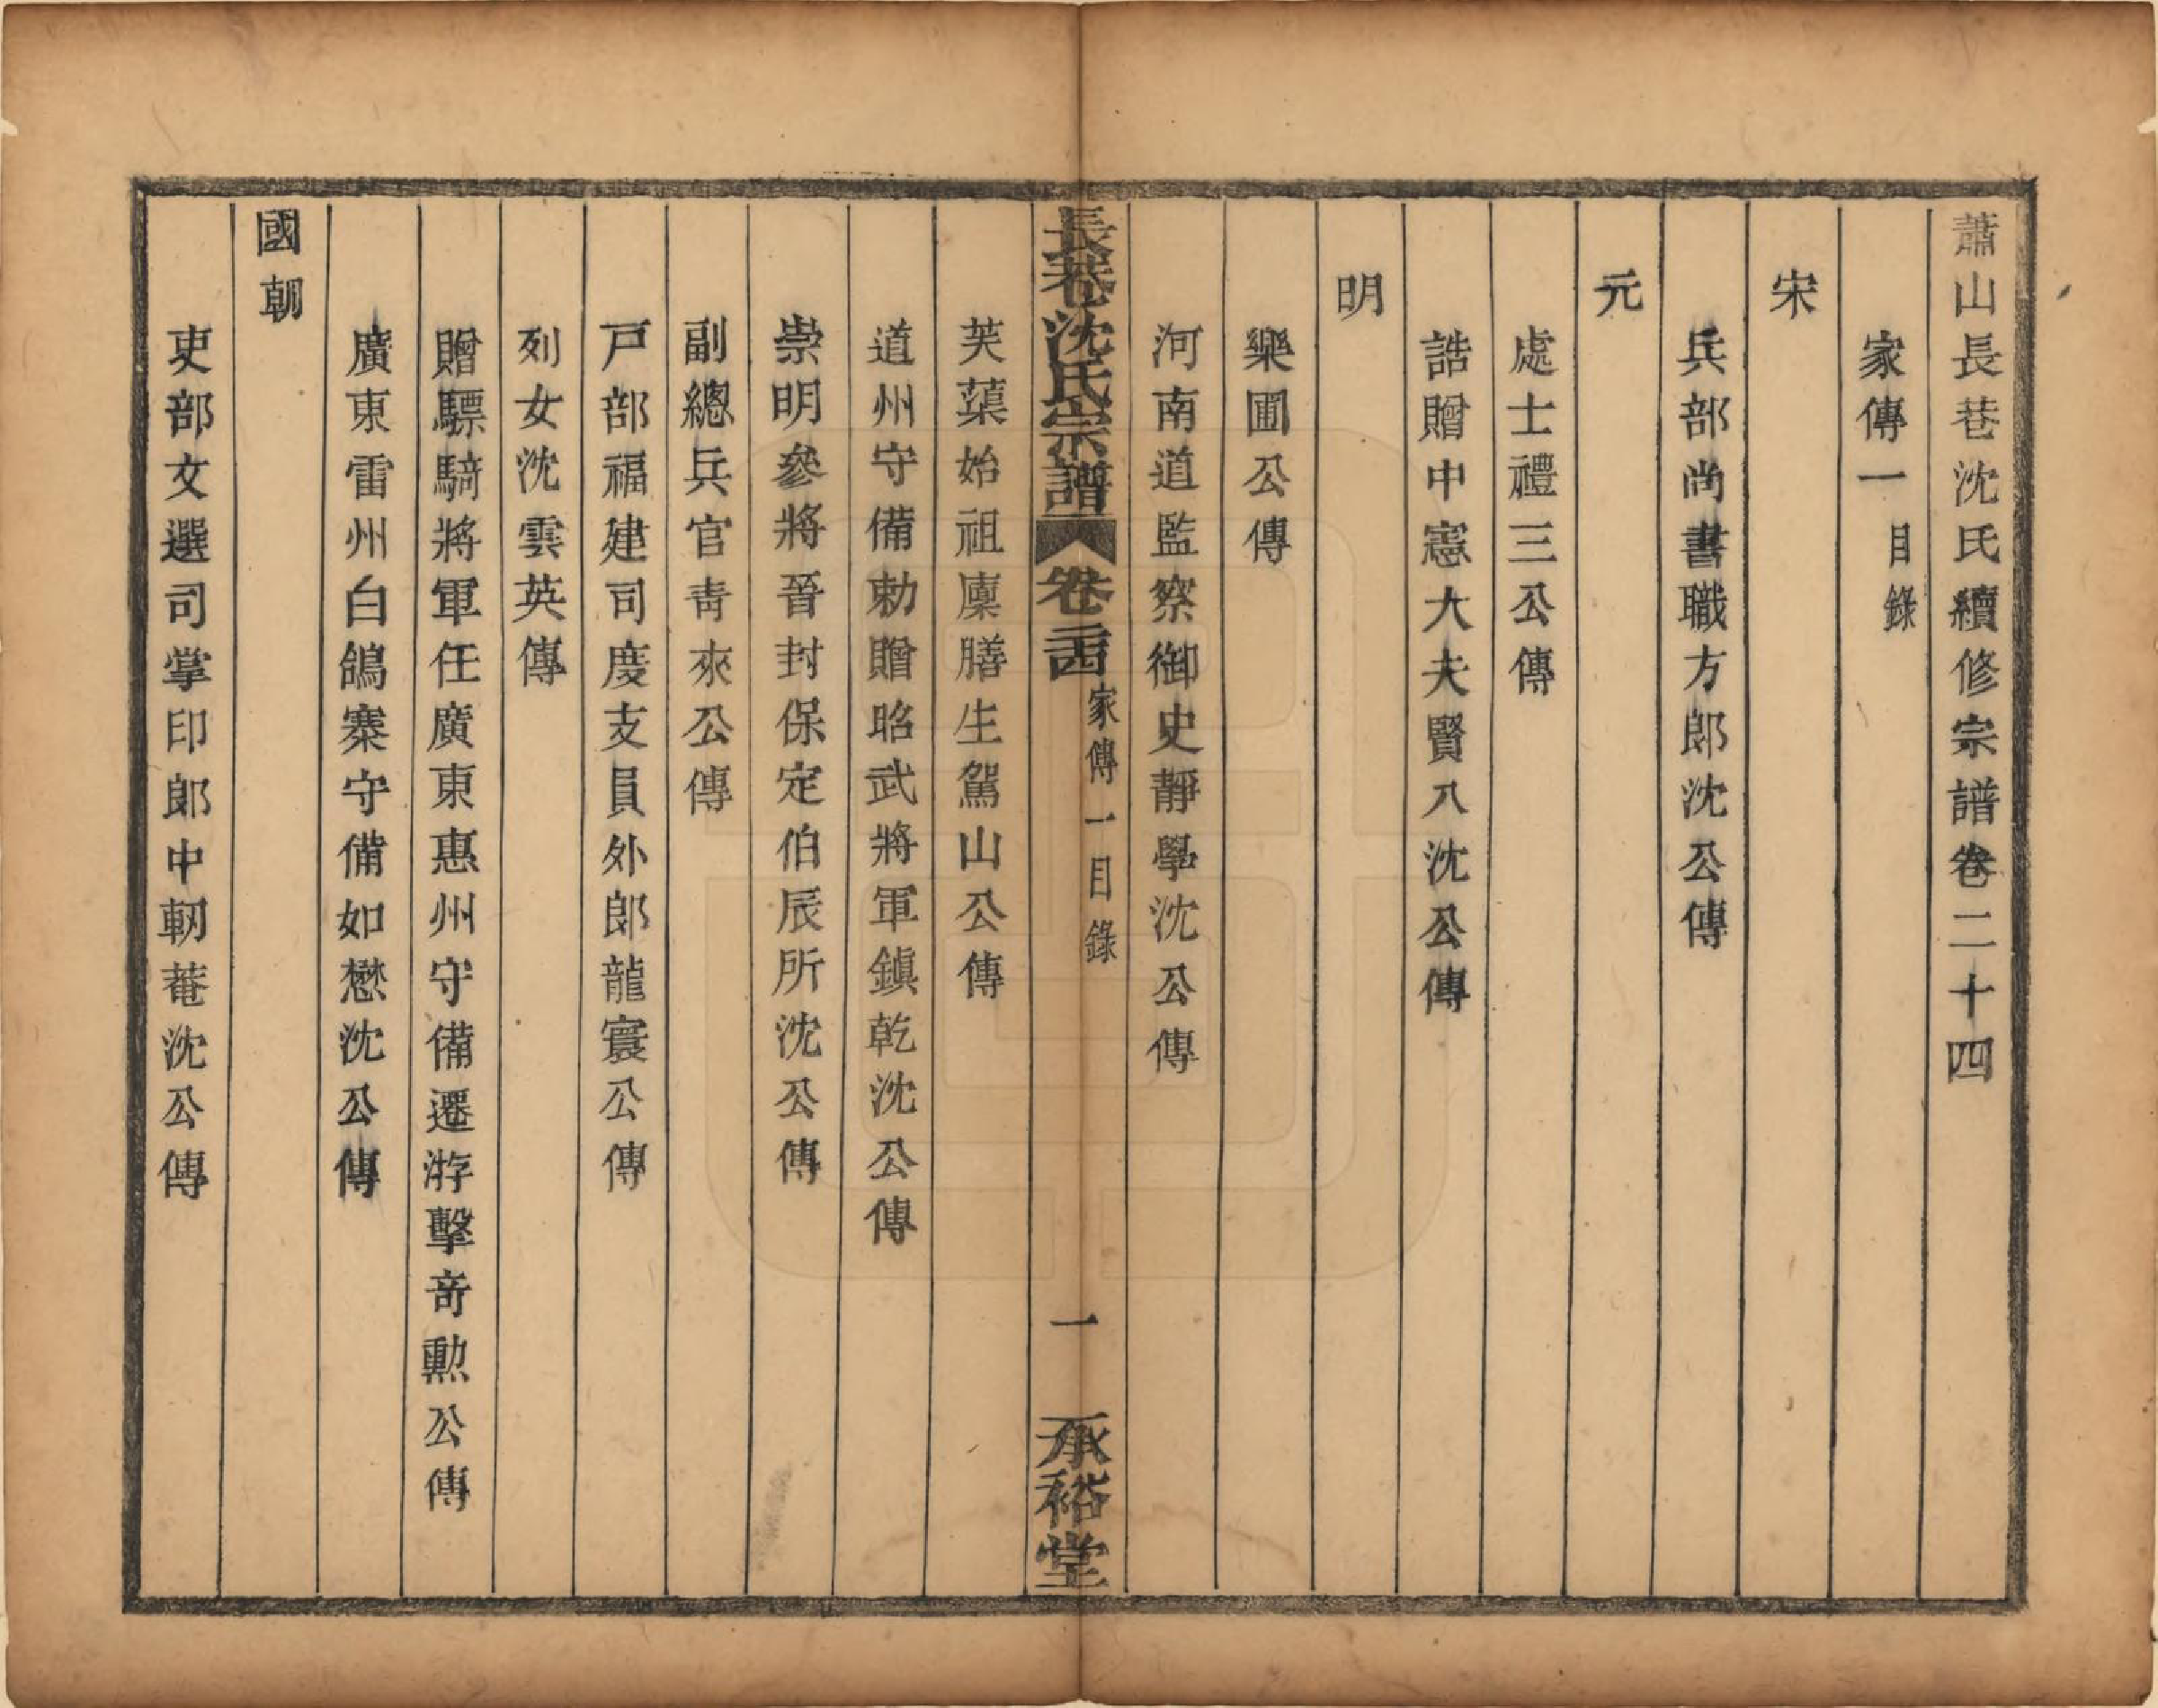 蕭山長巷沈氏續修宗譜卷二十四
家傳一 目錄
宋
兵部尚書職方郎沈公傳
元
處士禮三公傳
誥贈中憲大夫賢八沈公傳
明
樂圃公傳
河南道監察御史靜學沈公傳
長巷沈氏宗譜 卷二十四 家傳一目錄 一 承裕堂
芙蕖始祖廩膳生駕山公傳
道州守備勅贈昭武將軍鎮乾沈公傳
崇明參將晉封保定伯辰所沈公傳
副總兵官靑來公傳
戸部福建司度支員外郎龍寰公傳
列女沈雲英傳
贈驃騎將軍任廣東惠州守備遷游擊奇勲公傳
廣東雷州白鴿寨守備如懋沈公傳
國朝
吏部文選司掌印郎中軔菴沈公傳